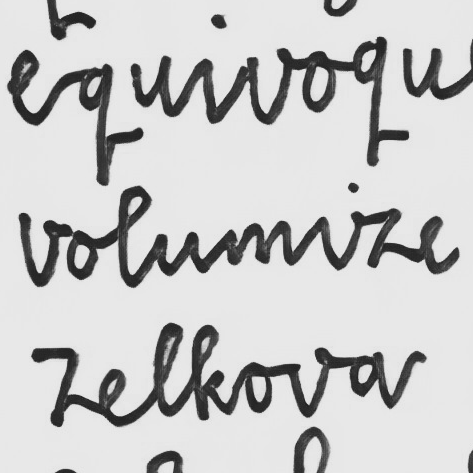 equivoqu
volumize
zelkova